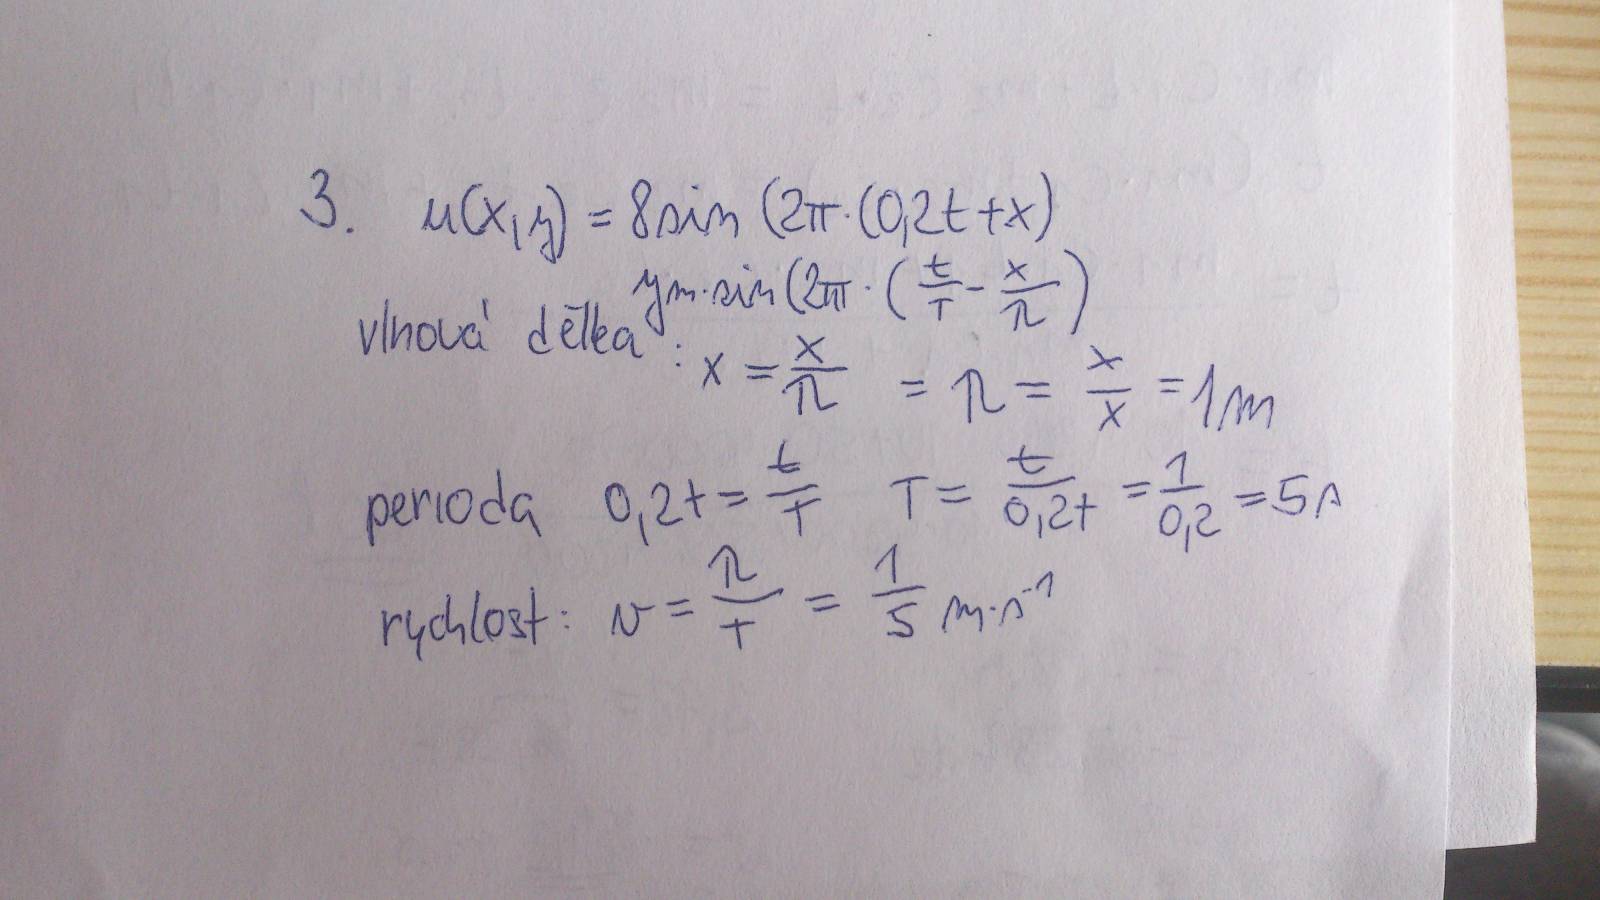 3. u(x,y) = 8 sin (2π·(0,2t + x)
ym·sin (2π·(t/T - x/λ)
vlnová délka: x = x/λ = λ = x/x = 1m
perioda 0,2t = t/T T = t/0,2t = 1/0,2 = 5s
rychlost: v = λ/T = 1/5 m·s⁻¹